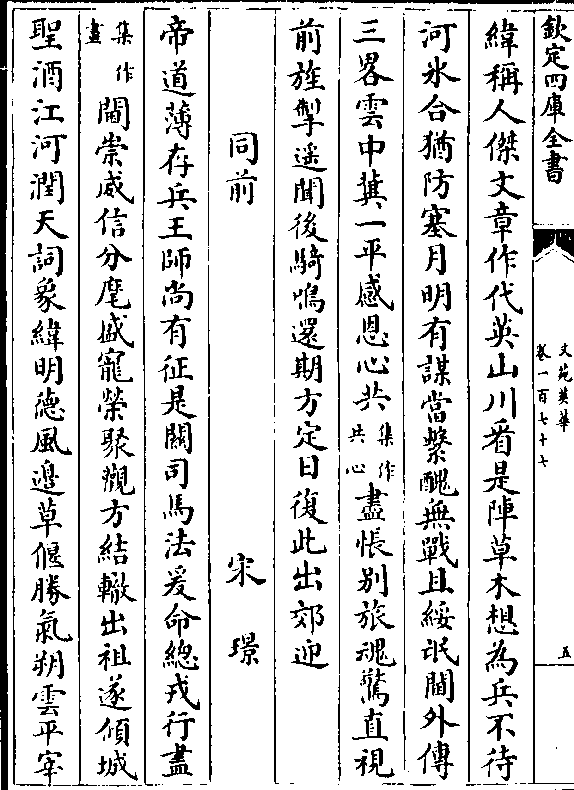 欽定四庫全書
文苑英華
卷一百七十七
五
緯稱人傑文章作代英山川看是陣草木想為兵不待
河氷合猶防塞月明有謀當繫醜無戰且綏氓閫外傳
三畧雲中冀一平感恩心共集作共心盡悵别旅魂驚直視
前旌掣遥聞後騎鳴還期方定日復此出郊迎
同前 宋璟
帝道薄存兵王師尚有征是關司馬法爰命總戎行盡
集作畫閫崇威信分麾盛寵榮聚觀方結轍出祖遂傾城
聖酒江河潤天詞象緯明德風邉草偃勝氣朔雲平宰